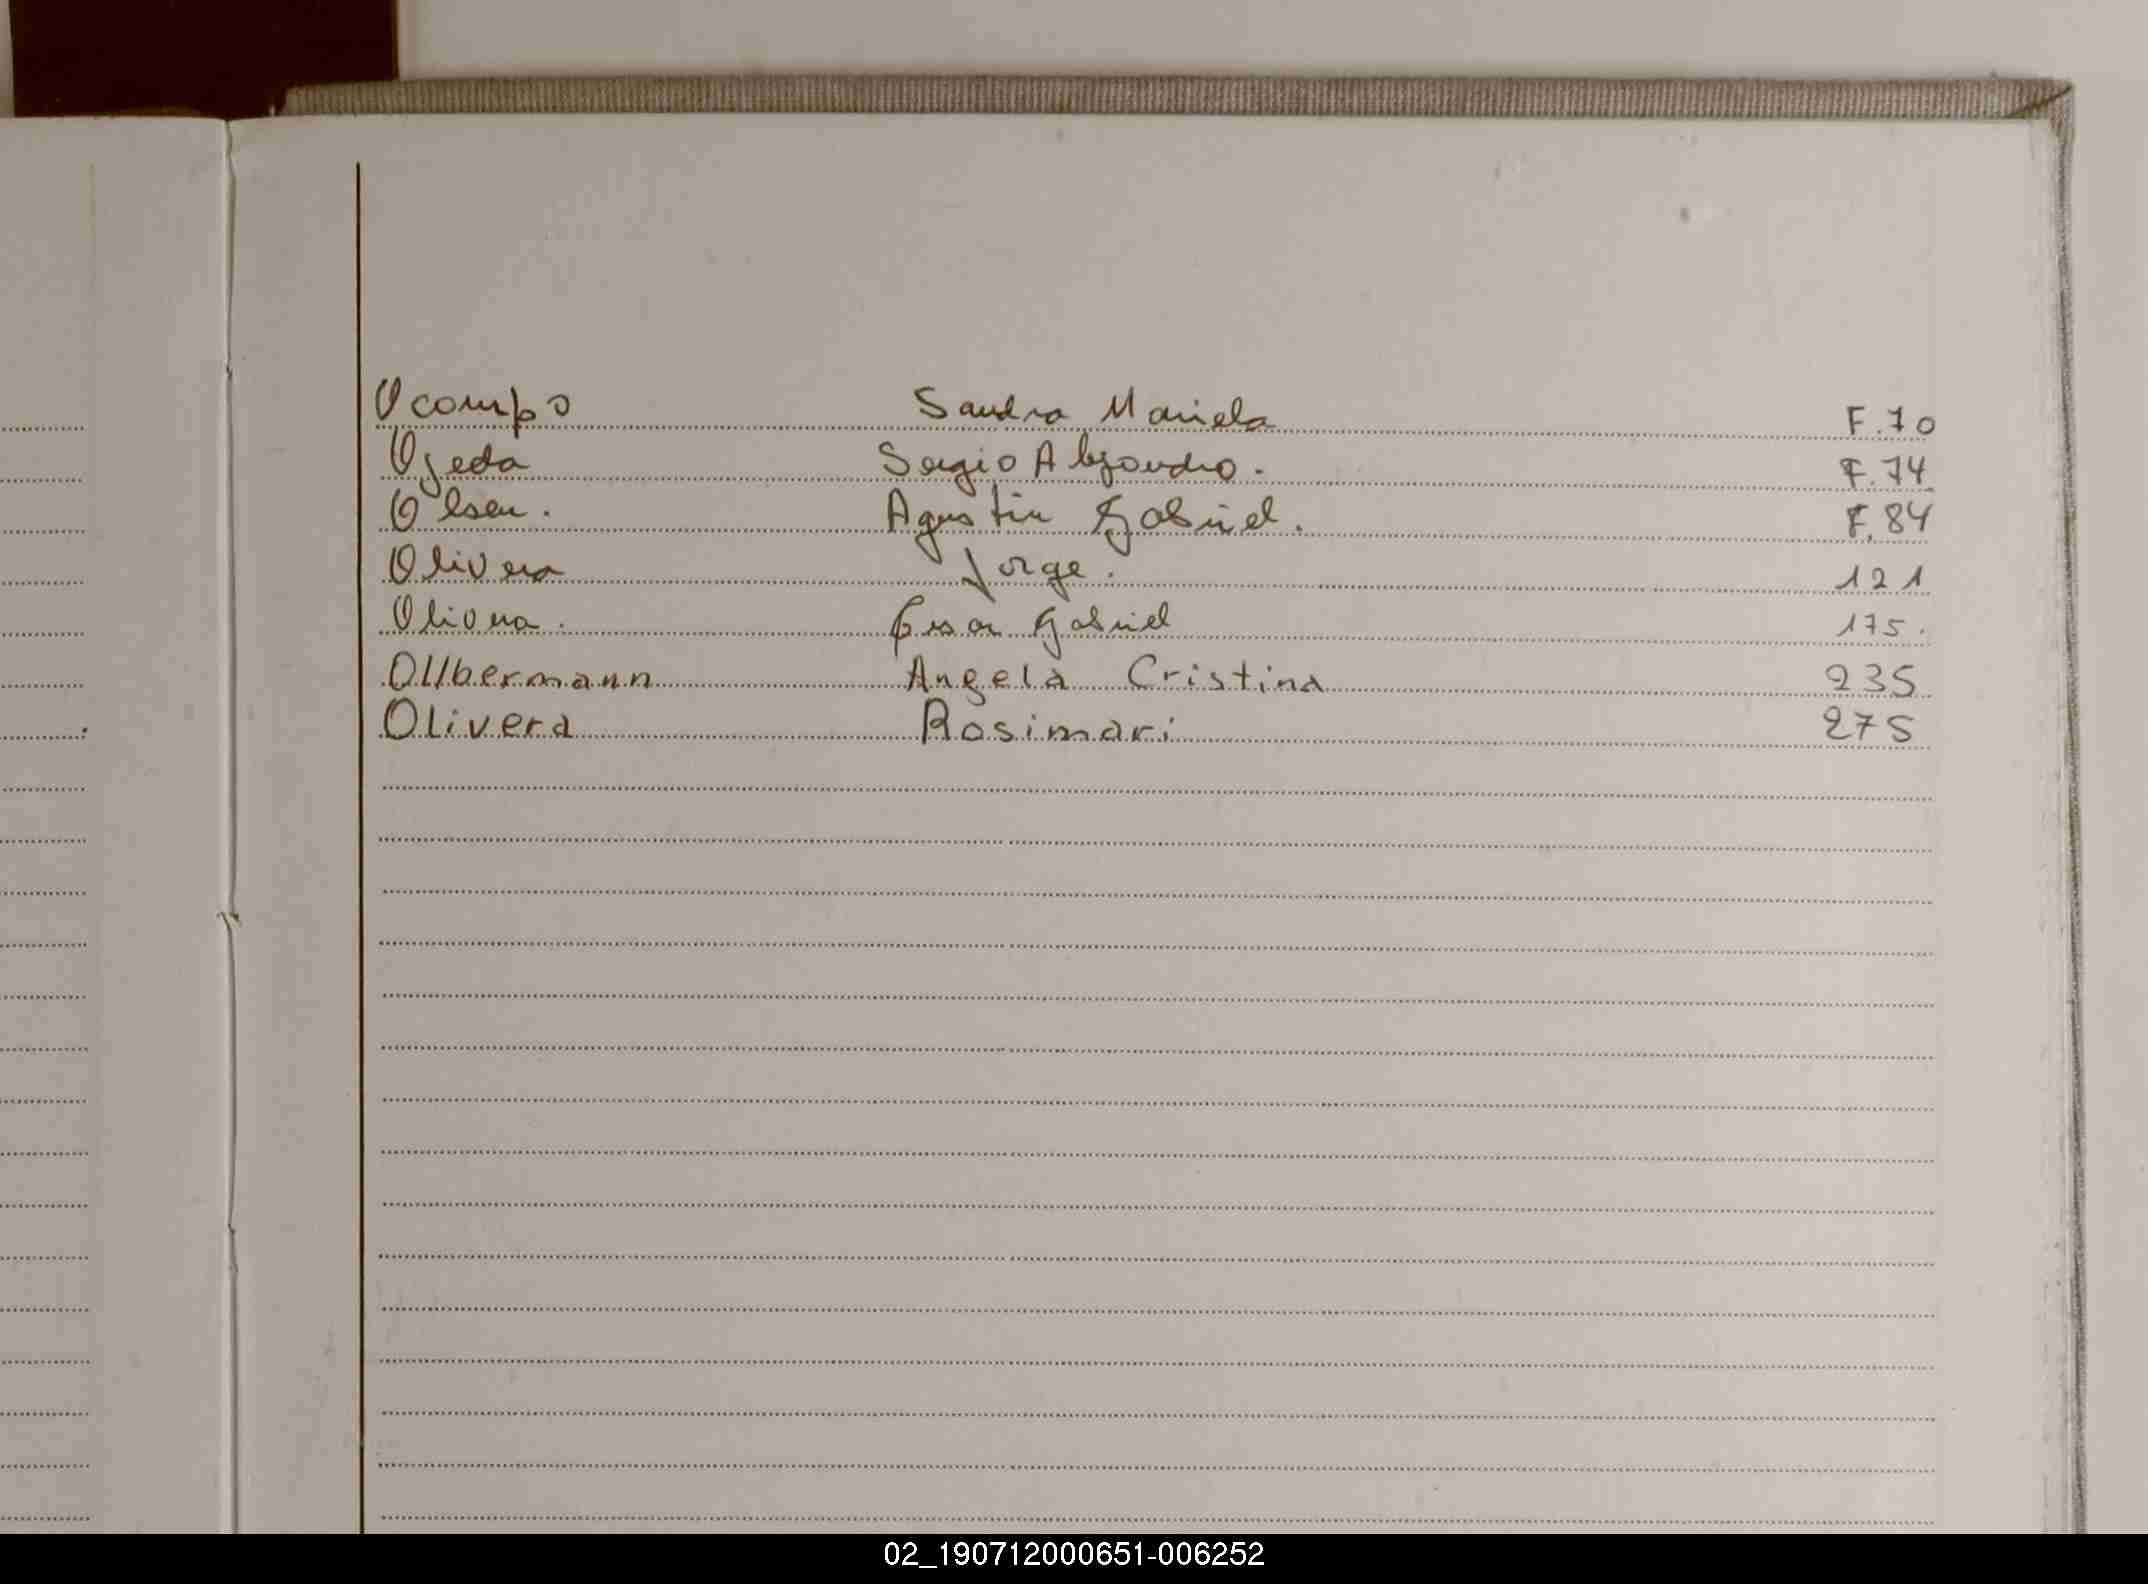 Ocampo Sandra Mariela F.70
Ojeda Sergio Alejandro. F.74
Olsen. Agustin Gabriel. F.84
Olivera Jorge. 121
Olivera. Cesar Gabriel 175.
Ollbermann Angela Cristina 235
Olivera Rosimari 275
02_190712000651-006252